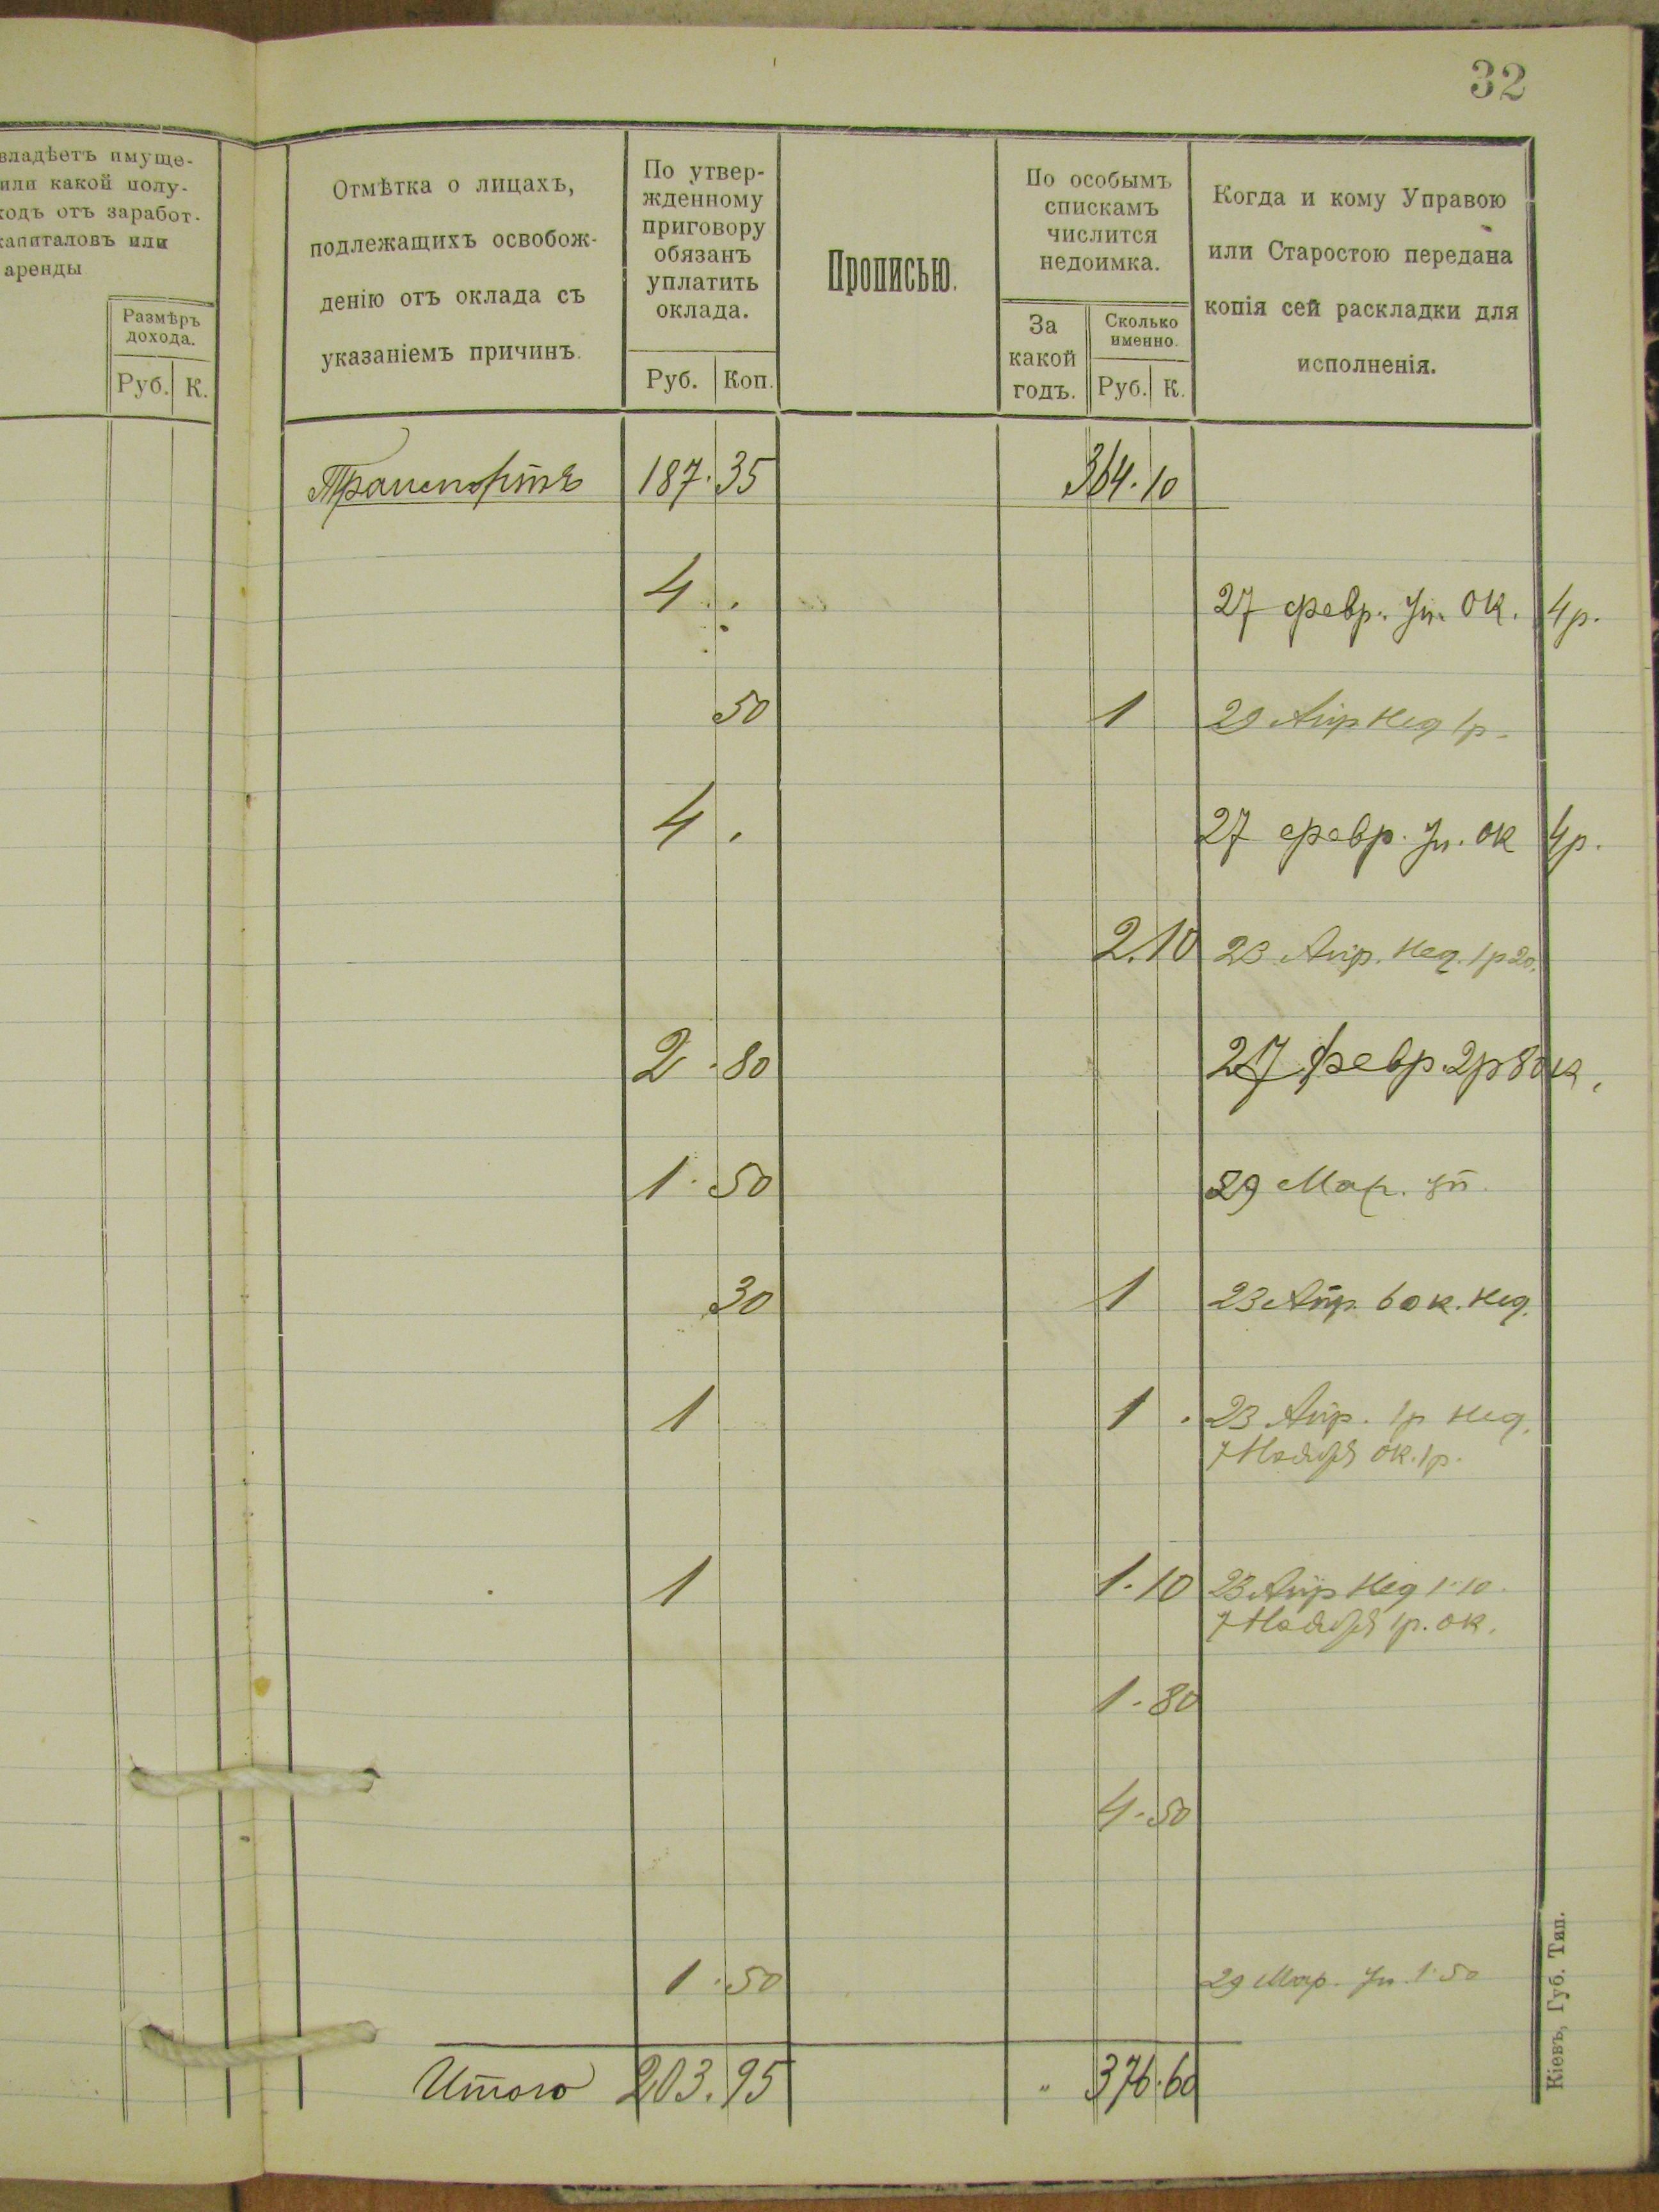 32
владѣетъ имуще-
или какой полу-
ходъ отъ заработ-
капиталовъ или
аренды
Размѣръ
дохода.
Руб. К.
Отмѣтка о лицахъ,
подлежащихъ освобож-
денію отъ оклада съ
указаніемъ причинъ.
По утвер-
жденному
приговору
обязанъ
уплатить
оклада.
Руб. Коп.
Прописью.
По особымъ
спискамъ
числится
недоимка.
За
какой
годъ.
Сколько
именно.
Руб. К.
Когда и кому Управою
или Старостою передана
копія сей раскладки для
исполненія.
Транспортъ 187. 35 364. 10
4 . 27 февр. уп. ок. 4р.
50 1 29 Апр Нед 1р.
4 . 27 февр. уп. ок 4р.
2.10 23 Апр. Нед. 1р 20.
2 . 80 27 февр. 2р 80к.
1 . 50 29 Мар. уп.
30 1 23 Апр. 60 к. Нед.
1 1 . 23 Апр. 1р Нед.
7 Ноября ок. 1р.
1 1. 10 23 Апр Нед 1.10.
7 Ноября 1р. ок.
1. 80
4. 50
1 . 50 29 Мар. уп. 1.50
Итого 203. 95 " 376. 60
Кіевъ, Губ. Тип.